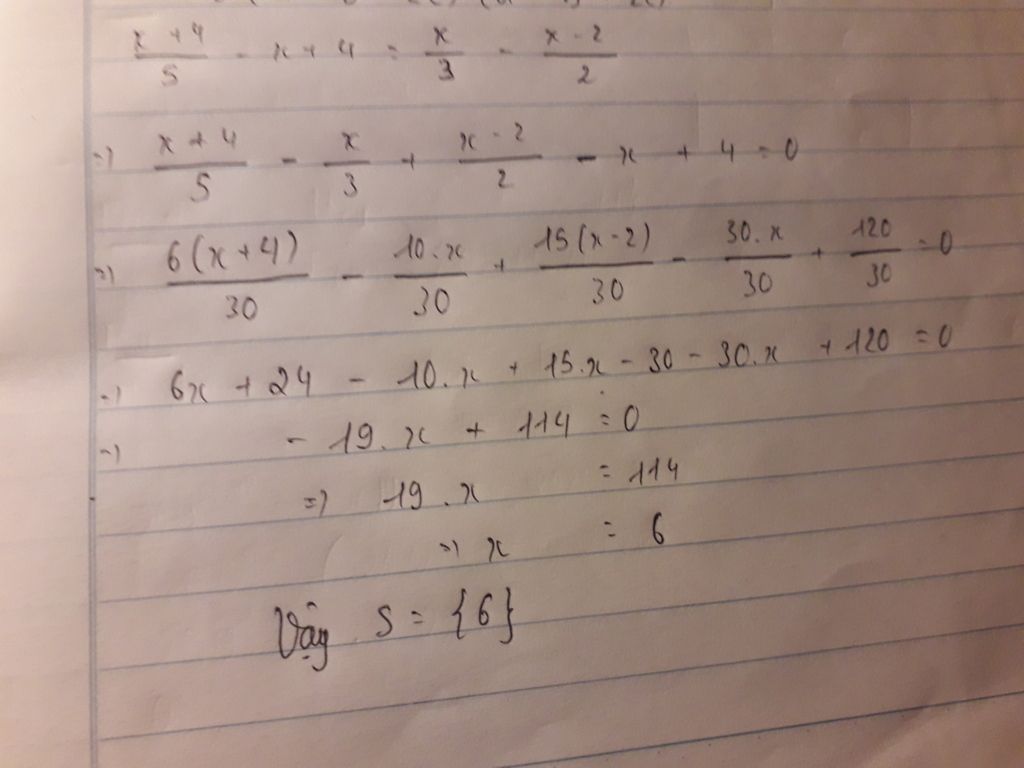 (x + 4)/5 - x + 4 = x/3 - (x - 2)/2
=) (x + 4)/5 - x/3 + (x - 2)/2 - x + 4 = 0
=) 6(x + 4)/30 - 10.x/30 + 15(x - 2)/30 - 30.x/30 + 120/30 = 0
=) 6x + 24 - 10.x + 15.x - 30 - 30.x + 120 = 0
=) - 19.x + 114 = 0
=) 19.x = 114
=) x = 6
Vậy S = {6}